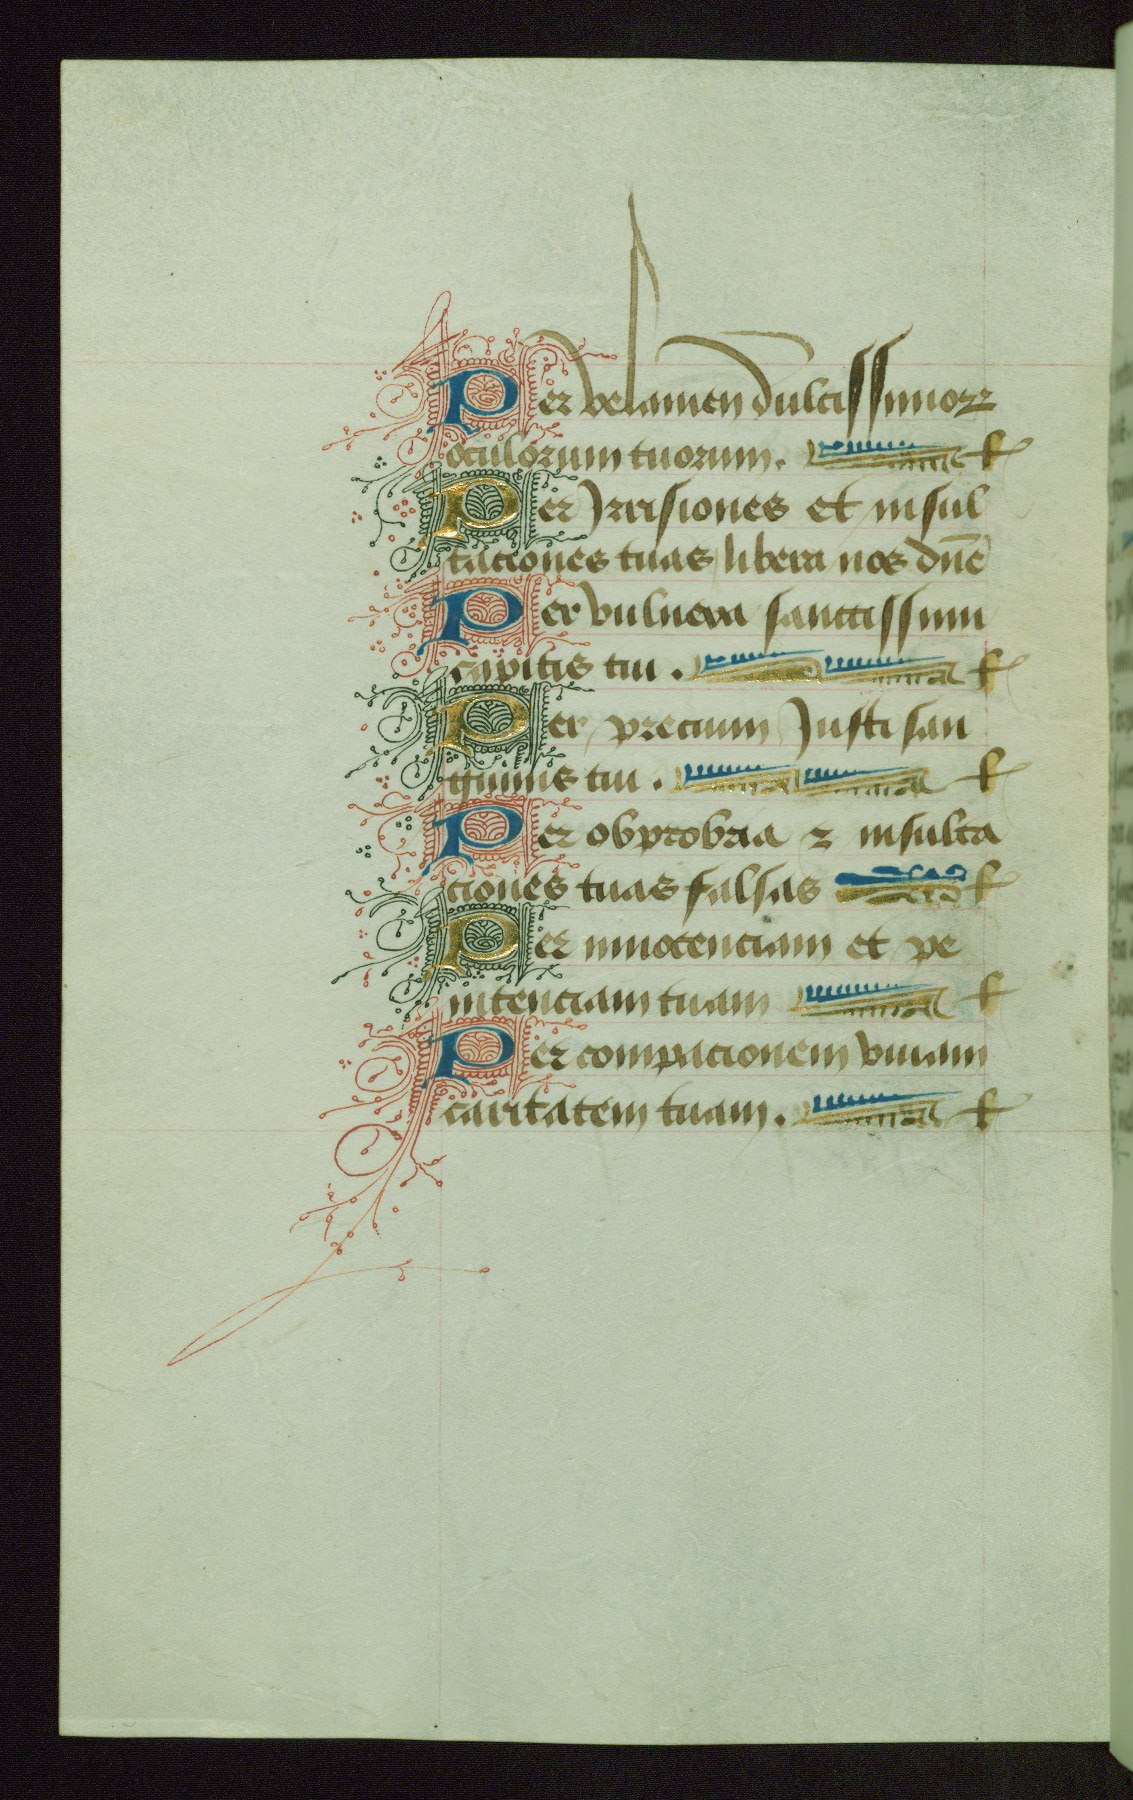 Per velamen dulcissimoꝝ
oculorum tuorum. ł
Per Irrisiones et insul
taciones tuas libera nos dn̄e
Per vulnera sanctissimi
capitis tui. ł
Per precium Justi san
guinis tui. ł
Per obprobria ⁊ insulta
ciones tuas falsas ł
Per innocenciam et pe
nitenciam tuam ł
Per compacionem vniam
caritatem tuam. ł